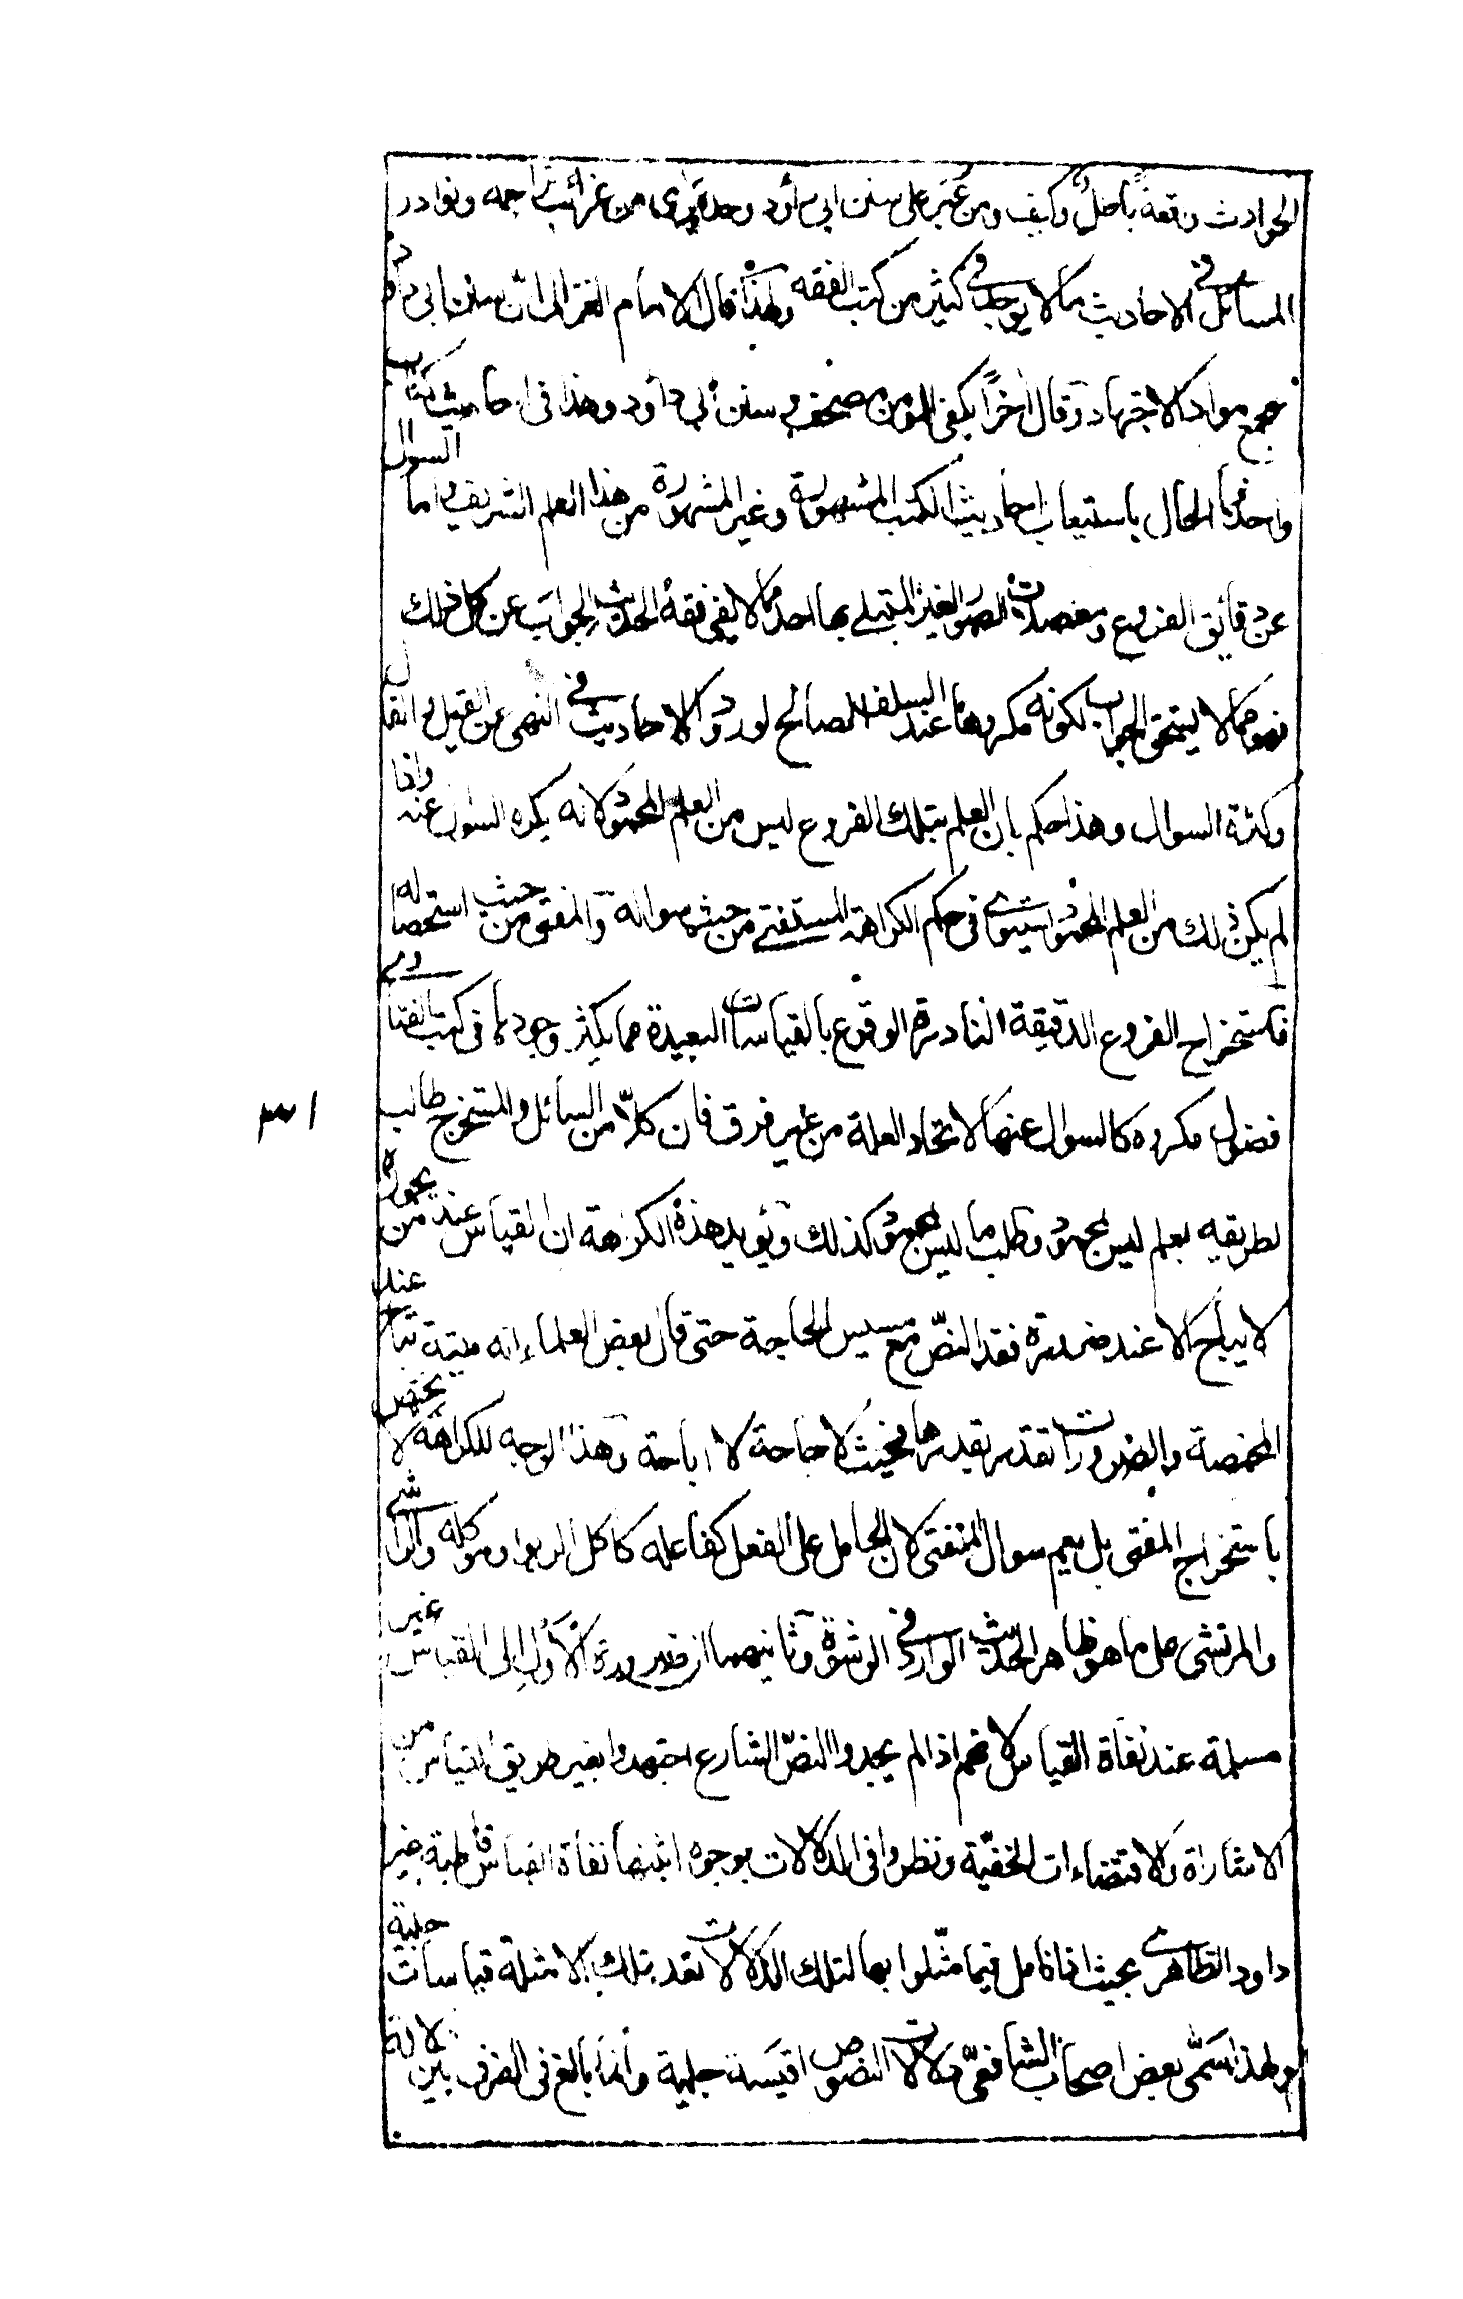 الحوادث وقعة باصل وكيف ومن عبر على سنن ابي داود وحده يرى من غرائب تراجمه ونوادر
المسائل في الاحاديث ما لا يوجد في كثير من كتب الفقه ولهذا قال الامام الغزالى ان سنن ابي داود
جمع مواد الاجتهاد وقال اخرًا يكفى المؤمن مصحف و سنن ابي داود وهذا في احاديث كتاب
واحد فما الحال باستيعاب احاديث الكتب المشهورة وغير المشهورة من هذا العلم الشريف واما السوال
عن دقائق الفروع ومفصلات الصور الغير المبتلى بها احد مما لا يفي فقه الحديث الجواب عن كل ذلك
فهو مما لا يستحق الجواب لكونه مكروها عند السلف الصالح لورود الاحاديث في النهى عن القيل و القال
وكثرة السوال وهذا حكم بان العلم بتلك الفروع ليس من العلم المحمود لانه يكره السوال عنه واذا
لم يكن ذلك من العلم المحمود يستوى في حكم الكراهة المستفتى من حيث سواله والمفتى من حيث استحصاله
فاستخراج الفروع الدقيقة النادرة الوقوع بالقياسات البعيدة مما يكثر وجودها في كتب الفتاوى
فضول مكروه كالسوال عنها لاتحاد العلة من غير فرق فان كلّا من السائل والمستخرج طالب
بطريقه لعلم ليس بمحمود وطلب ما ليس بمحمود كذلك ويؤيد هذه الكراهة ان القياس عند من يجوزه
لا يباح الا عند ضرورة فقد النصّ مع مسيس الحاجة حتى قال بعض العلماء انه ميتة تباح عند
المخمصة والضرورات تقدر بقدرها فحيث لا حاجة لا اباحة وهذا الوجه للكراهة لا يختص
باستخراج المفتى بل يعم سوال المستفتى لان الحامل على الفعل كفاعله كاكل الربوا وموكله والراشي
والمرتشى على ما هو ظاهر الحديث الوارد في الرشوة وثانيهما ان ضرورة الاول الى القياس غير
مسلمة عند نفاة القياس لانهم اذا لم يجدوا النصّ الشارع اجتهدوا بغير طريق القياس من
الاشارة والاقتضاءات الخفيّة ونظروا في الدلالات بوجوه اثبتها نفاة القياس قاطبة غير
داود الظاهري بحيث اذا تامل فيما مثّلوا بها لتلك الدلالات تعد تلك الامثلة قياسات جلية
ولهذا سمّى بعض اصحاب الشافعيّ دلالات النصوص اقيسة جلية وانما بالغ في الفرق بين دلالة
٣١